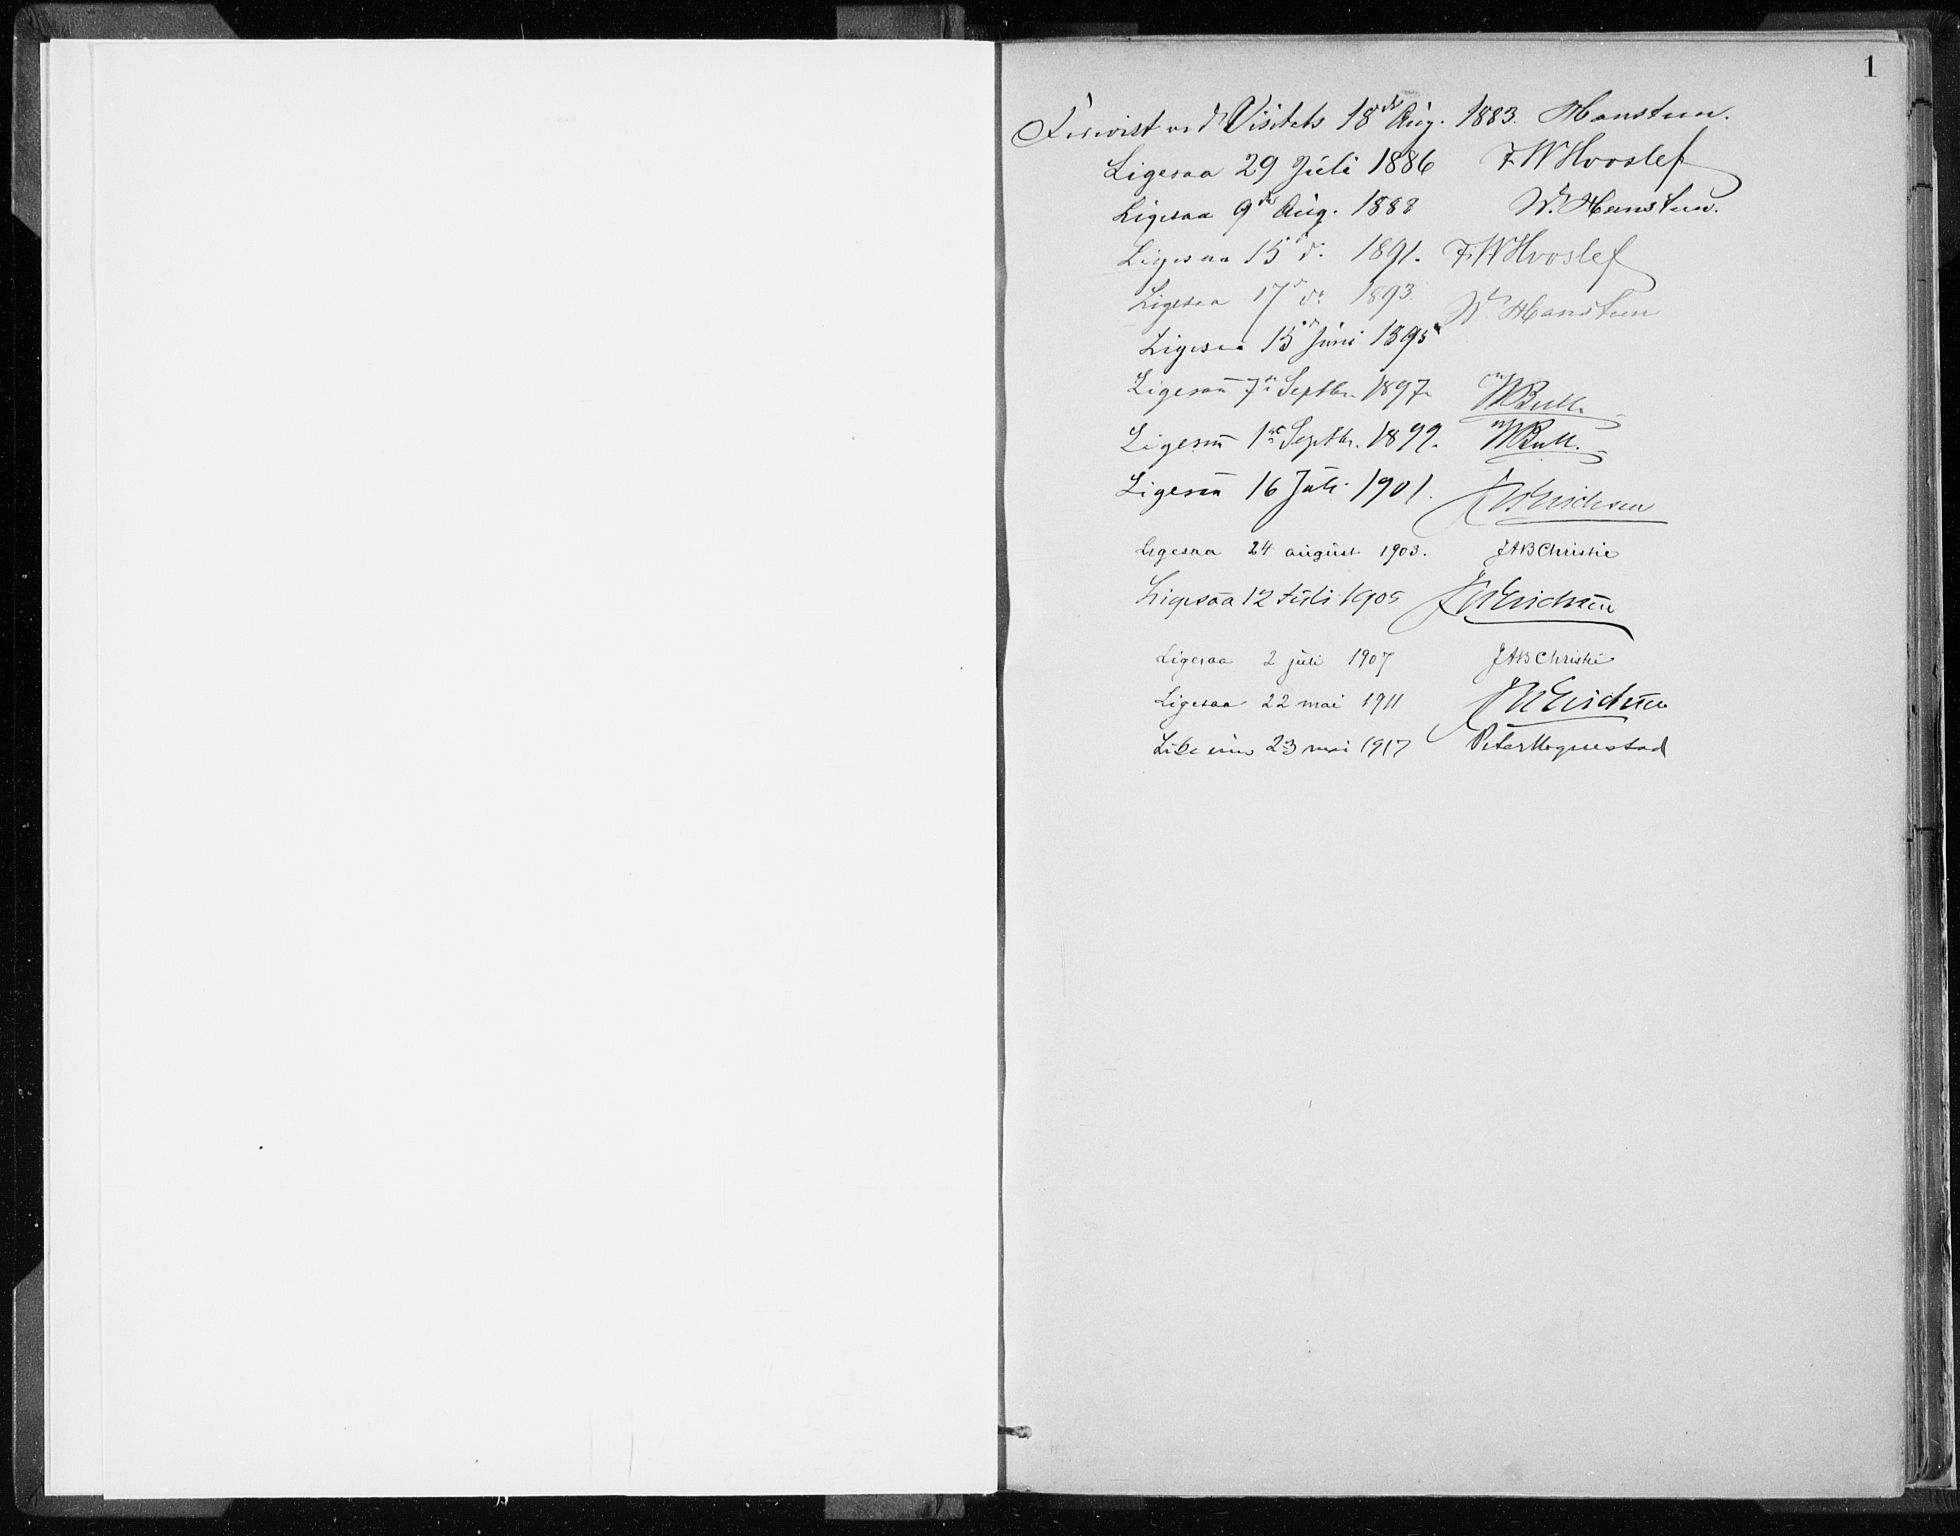 1
Forevist ved Visitats 18de Aug. 1883. Hansteen.
Ligesaa 29 Juli 1886 F W Hvoslef
Ligesaa 9de Aug. 1888 W. Hansteen.
Ligesaa 15d do 1891. F W Hvoslef
Ligesaa 17d do 1893. W. Hansteen
Ligesaa 15d Juni 1895
Ligesaa 7de Septbr. 1897 Bull.
Ligesaa 1ste Septbr. 1899. Bull.
Ligesaa 16 Juli 1901. Erichsen
Ligesaa 24 august 1903. JAB Christie
Ligesaa 12 Juli 1905 Erichsen
Ligesaa 2 juli 1907 JAB Christie
Ligesaa 22 mai 1911 Erichsen
23 mai 1917 Peter Hognestad